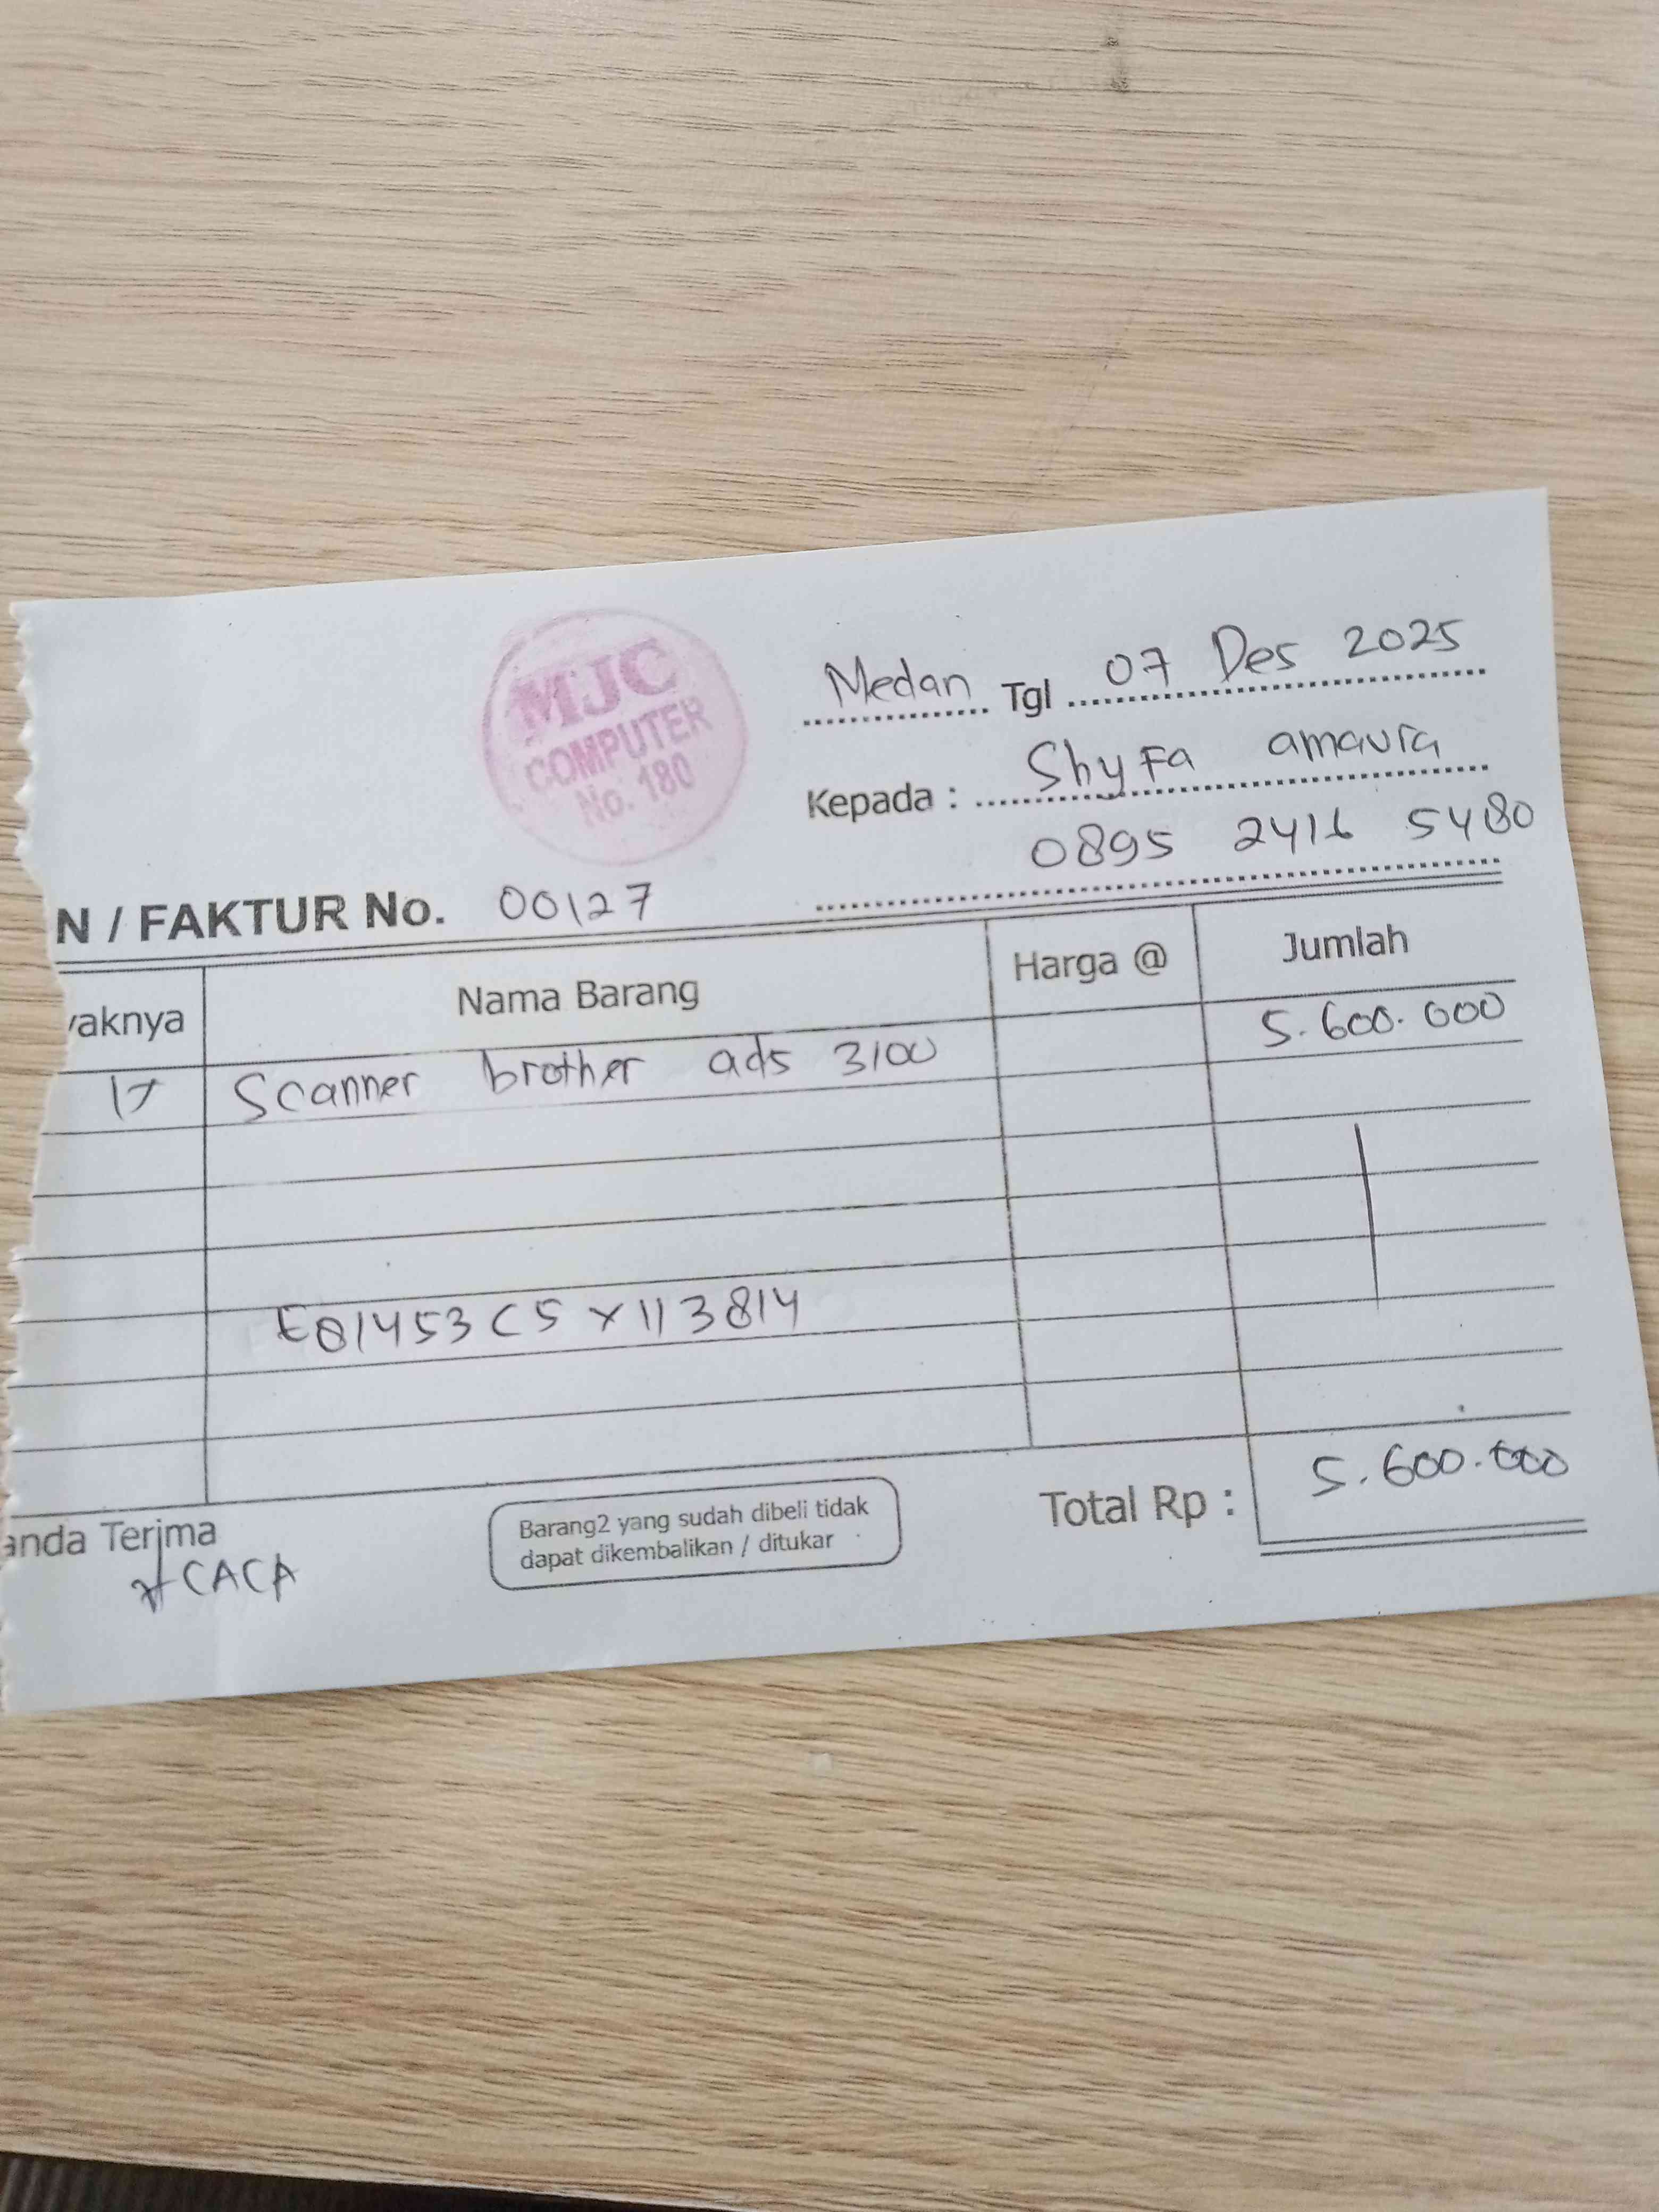 MJC
COMPUTER
No. 180
Medan Tgl 07 Des 2025
Kepada : Shyfa amaura
0895 2416 5480
N / FAKTUR No. 00127
yaknya Nama Barang Harga @ Jumlah
Scanner brother ads 3100 5.600.000
E81453C5X113814
anda Terima
CACA
Barang2 yang sudah dibeli tidak
dapat dikembalikan / ditukar
Total Rp : 5.600.000